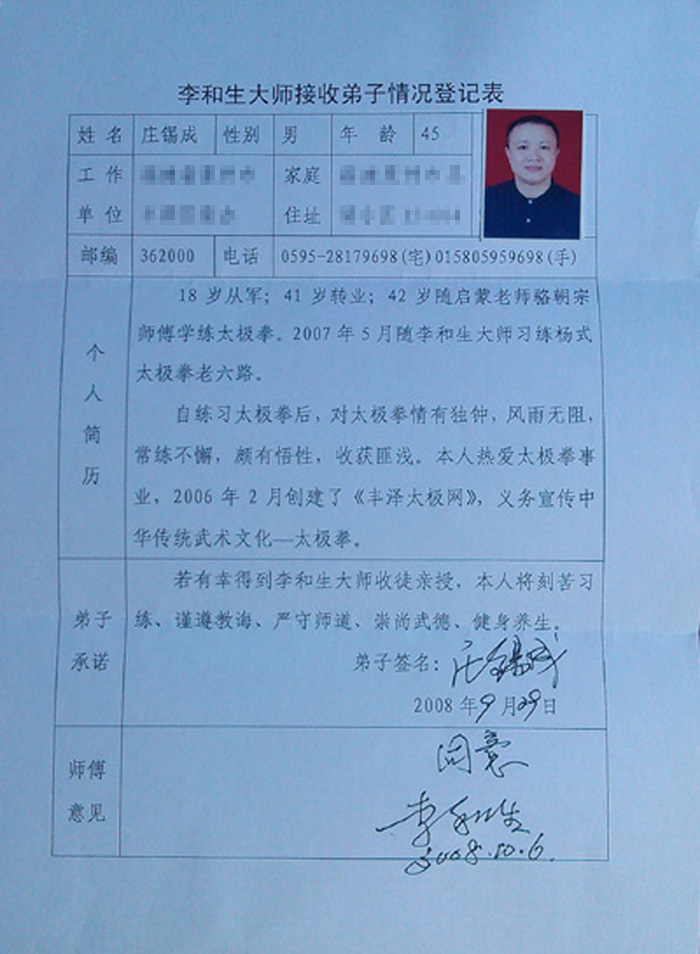 李和生大师接收弟子情况登记表
姓 名 庄锡成 性别 男 年 龄 45
工 作 家庭
单 位 住址
邮编 362000 电话 0595-28179698(宅)015805959698(手)
个人简历
18 岁从军；41 岁转业；42 岁随启蒙老师骆朝宗
师傅学练太极拳。2007 年 5 月随李和生大师习练杨式
太极拳老六路。
自练习太极拳后，对太极拳情有独钟，风雨无阻，
常练不懈，颇有悟性，收获匪浅。本人热爱太极拳事
业，2006 年 2 月创建了《丰泽太极网》，义务宣传中
华传统武术文化—太极拳。
弟子
承诺
若有幸得到李和生大师收徒亲授，本人将刻苦习
练、谨遵教诲、严守师道、崇尚武德、健身养生。
弟子签名：庄锡成
2008 年 9 月 29 日
师傅
意见
同意
李和生
2008.10.6.